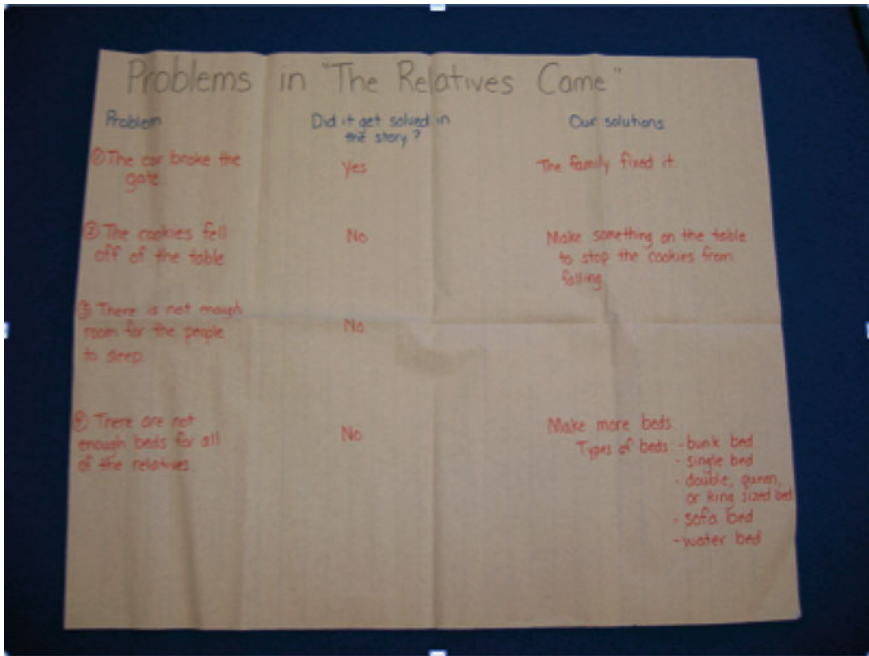 Problems in "The Relatives Came"
Problem
Did it get solved in
the story?
Our solutions
① The car broke the
gate.
Yes
The family fixed it.
② The cookies fell
off of the table
No
Make something on the table
to stop the cookies from
falling.
③ There is not enough
room for the people
to sleep.
No
④ There are not
enough beds for all
of the relatives.
No
Make more beds.
Types of beds: - bunk bed
- single bed
- double, queen,
or king sized bed
- sofa bed
- water bed